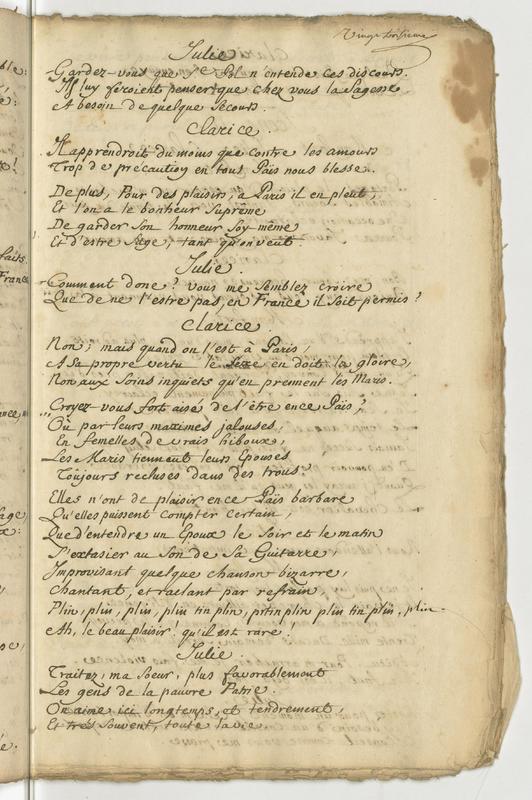 Vingt troisieme
Julie
Gardez-vous que n'entende ces discours.
Ils luy feroient penser que chez vous la Sagesse
A besoin de quelque Secours.
Clarice.
Il apprendroit du moins que contre les amours
Trop de précaution en tout Païs nous blesse.
De plus, Pour des plaisirs, à Paris il en pleut,
Et l'on a le bonheur Suprême
De garder Son honneur Soy-même
Et d'estre Sage, tant qu'on veut.
Julie.
Comment donc? vous me Semblez croire
Que de ne l'estre pas, en France il Soit permis?
Clarice.
Non; mais quand on l'est à Paris,
A Sa propre vertu le Sexe en doit la gloire,
Non aux Soins inquiets qu'en prennent les Maris.
Croyez-vous fort aisé de l'être en ce Païs,
Où par leurs maximes jalouses,
En femelles de vrais hiboux,
Les Maris tiennent leurs Epouses
Toûjours recluses dans des trous?
Elles n'ont de plaisir en ce Païs barbare
Qu'elles puissent compter certain,
Que d'entendre un Epoux le Soir et le matin
S'extasier au Son de Sa Guitarre,
Improvisant quelque chanson bizarre,
Chantant, et raclant par refrain
Plin, plin, plin, plin tin plin, prtin plin plin tin plin, plin.
Ah, le beau plaisir! qu'il est rare!
Julie.
Traitez, ma Soeur, plus favorablement
Les gens de la pauvre Patrie.
On aime ici longtemps, et tendrement,
Et très Souvent, toute la vie.